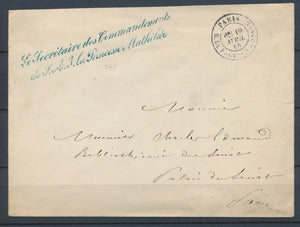 Le Secrétaire des Commandements
de S. A. I. la Princesse Mathilde
PARIS
19
AVRIL
Monsieur
Monsieur Charles Edmond
Bibliothécaire du Sénat
Palais du Sénat
Paris